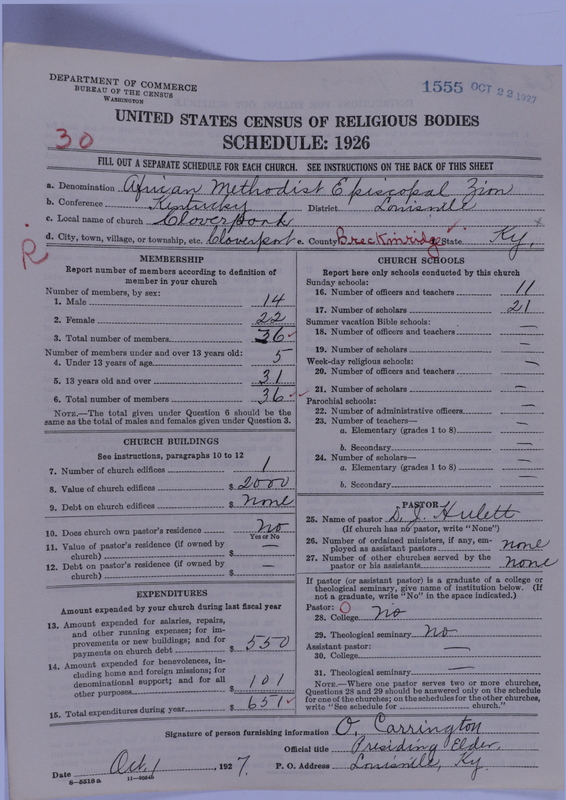 DEPARTMENT OF COMMERCE
BUREAU OF THE CENSUS
WASHINGTON
1555 OCT 22 1927
UNITED STATES CENSUS OF RELIGIOUS BODIES
30
SCHEDULE: 1926
FILL OUT A SEPARATE SCHEDULE FOR EACH CHURCH. SEE INSTRUCTIONS ON THE BACK OF THIS SHEET
a. Denomination African Methodist Episcopal Zion
b. Conference Kentucky District Louisville
c. Local name of church Cloverport
d. City, town, village, or township, etc. Cloverport e. County Breckinridge State Ky.
R
MEMBERSHIP
Report number of members according to definition of
member in your church
Number of members, by sex:
1. Male 14
2. Female 22
3. Total number of members 36
Number of members under and over 13 years old:
4. Under 13 years of age 5
5. 13 years old and over 31
6. Total number of members 36
NOTE.—The total given under Question 6 should be the
same as the total of males and females given under Question 3.
CHURCH BUILDINGS
See instructions, paragraphs 10 to 12
7. Number of church edifices 1
8. Value of church edifices $ 2000
9. Debt on church edifices $ none
10. Does church own pastor's residence? No
Yes or No
11. Value of pastor's residence (if owned by
church) $ —
12. Debt on pastor's residence (if owned by
church) $ —
EXPENDITURES
Amount expended by your church during last fiscal year
13. Amount expended for salaries, repairs,
and other running expenses; for im-
provements or new buildings; and for
payments on church debt $ 550
14. Amount expended for benevolences, in-
cluding home and foreign missions; for
denominational support; and for all
other purposes $ 101
15. Total expenditures during year $ 651
CHURCH SCHOOLS
Report here only schools conducted by this church
Sunday schools:
16. Number of officers and teachers 11
17. Number of scholars 21
Summer vacation Bible schools:
18. Number of officers and teachers —
19. Number of scholars —
Week-day religious schools:
20. Number of officers and teachers —
21. Number of scholars —
Parochial schools:
22. Number of administrative officers —
23. Number of teachers—
a. Elementary (grades 1 to 8) —
b. Secondary —
24. Number of scholars—
a. Elementary (grades 1 to 8) —
b. Secondary —
PASTOR
25. Name of pastor D. J. Hulett
(If church has no pastor, write "None")
26. Number of ordained ministers, if any, em-
ployed as assistant pastors none
27. Number of other churches served by the
pastor or his assistants none
If pastor (or assistant pastor) is a graduate of a college or
theological seminary, give name of institution below. (If
not a graduate, write "No" in the space indicated.)
Pastor:
28. College No
29. Theological seminary No
Assistant pastor:
30. College —
31. Theological seminary —
NOTE.—Where one pastor serves two or more churches,
Questions 28 and 29 should be answered only on the schedule
for one of the churches; on the schedules for the other churches,
write "See schedule for church."
Signature of person furnishing information O. Carrington
Official title Presiding Elder.
Date Oct, 1, 1927. P. O. Address Louisville, Ky.
8—5518a